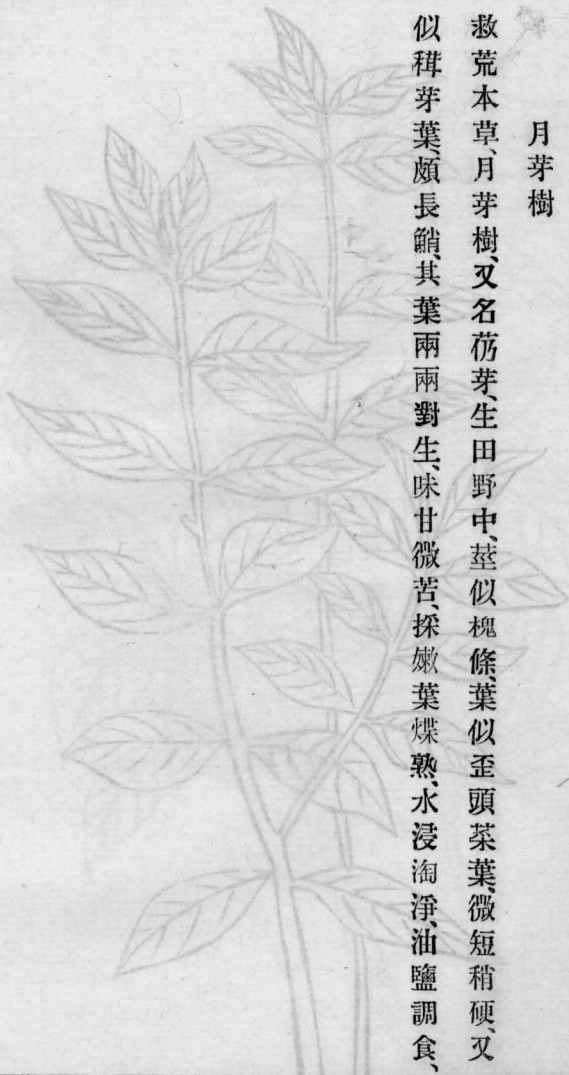 月芽樹
救荒本草、月芽樹、又名芿芽、生田野中、莖似槐條、葉似歪頭菜葉、微短稍硬、又
似稆芽葉、頗長艄、其葉兩兩對生、味甘微苦、採嫩葉煠熟、水浸淘淨、油鹽調食、